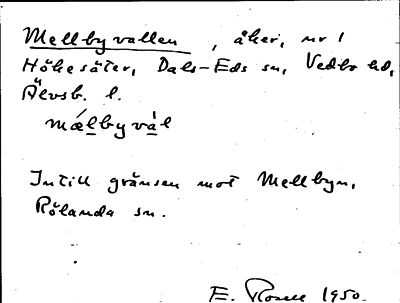 Mellbyvallen, åker, nr 1
Hökesäter, Dals-Eds sn, Vedbo hd,
Älvsb. l.
mǽlbyvàl
Intill gränsen mot Mellbyn,
Rölanda sn.
E. Rosell 1950.